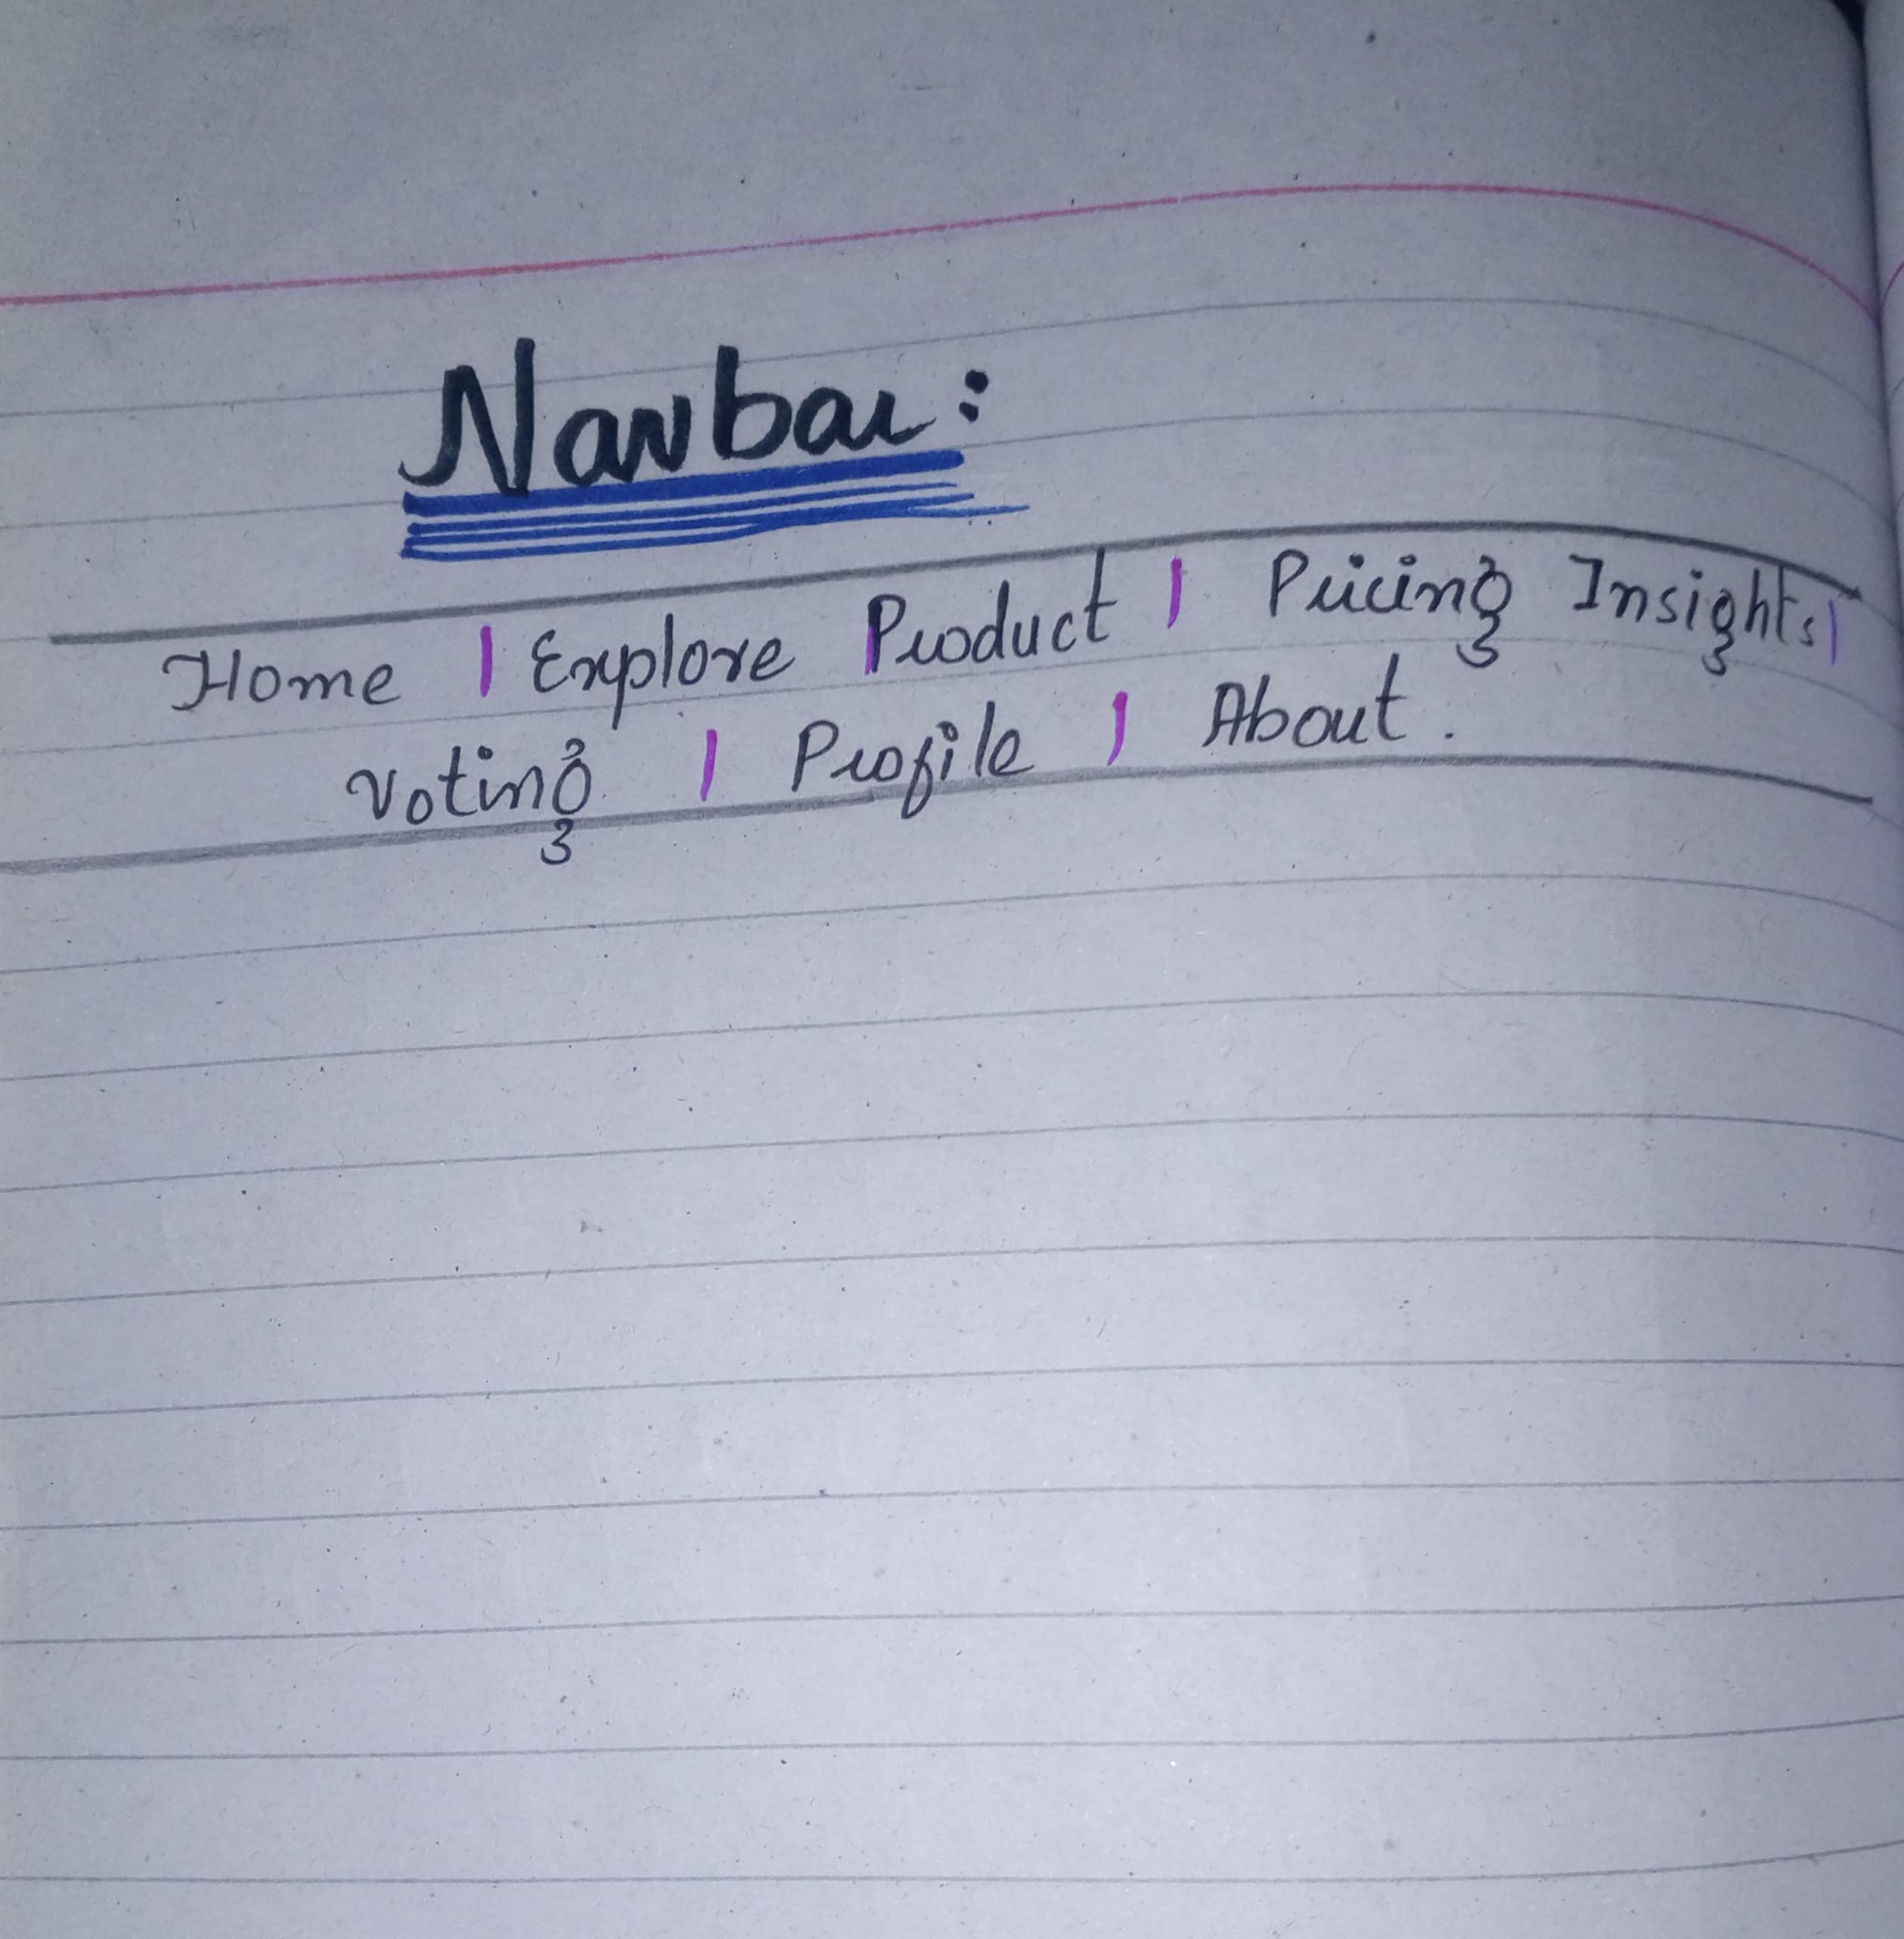 Navbar:
Home | Explore Product | Pricing Insights |
Voting | Profile | About.